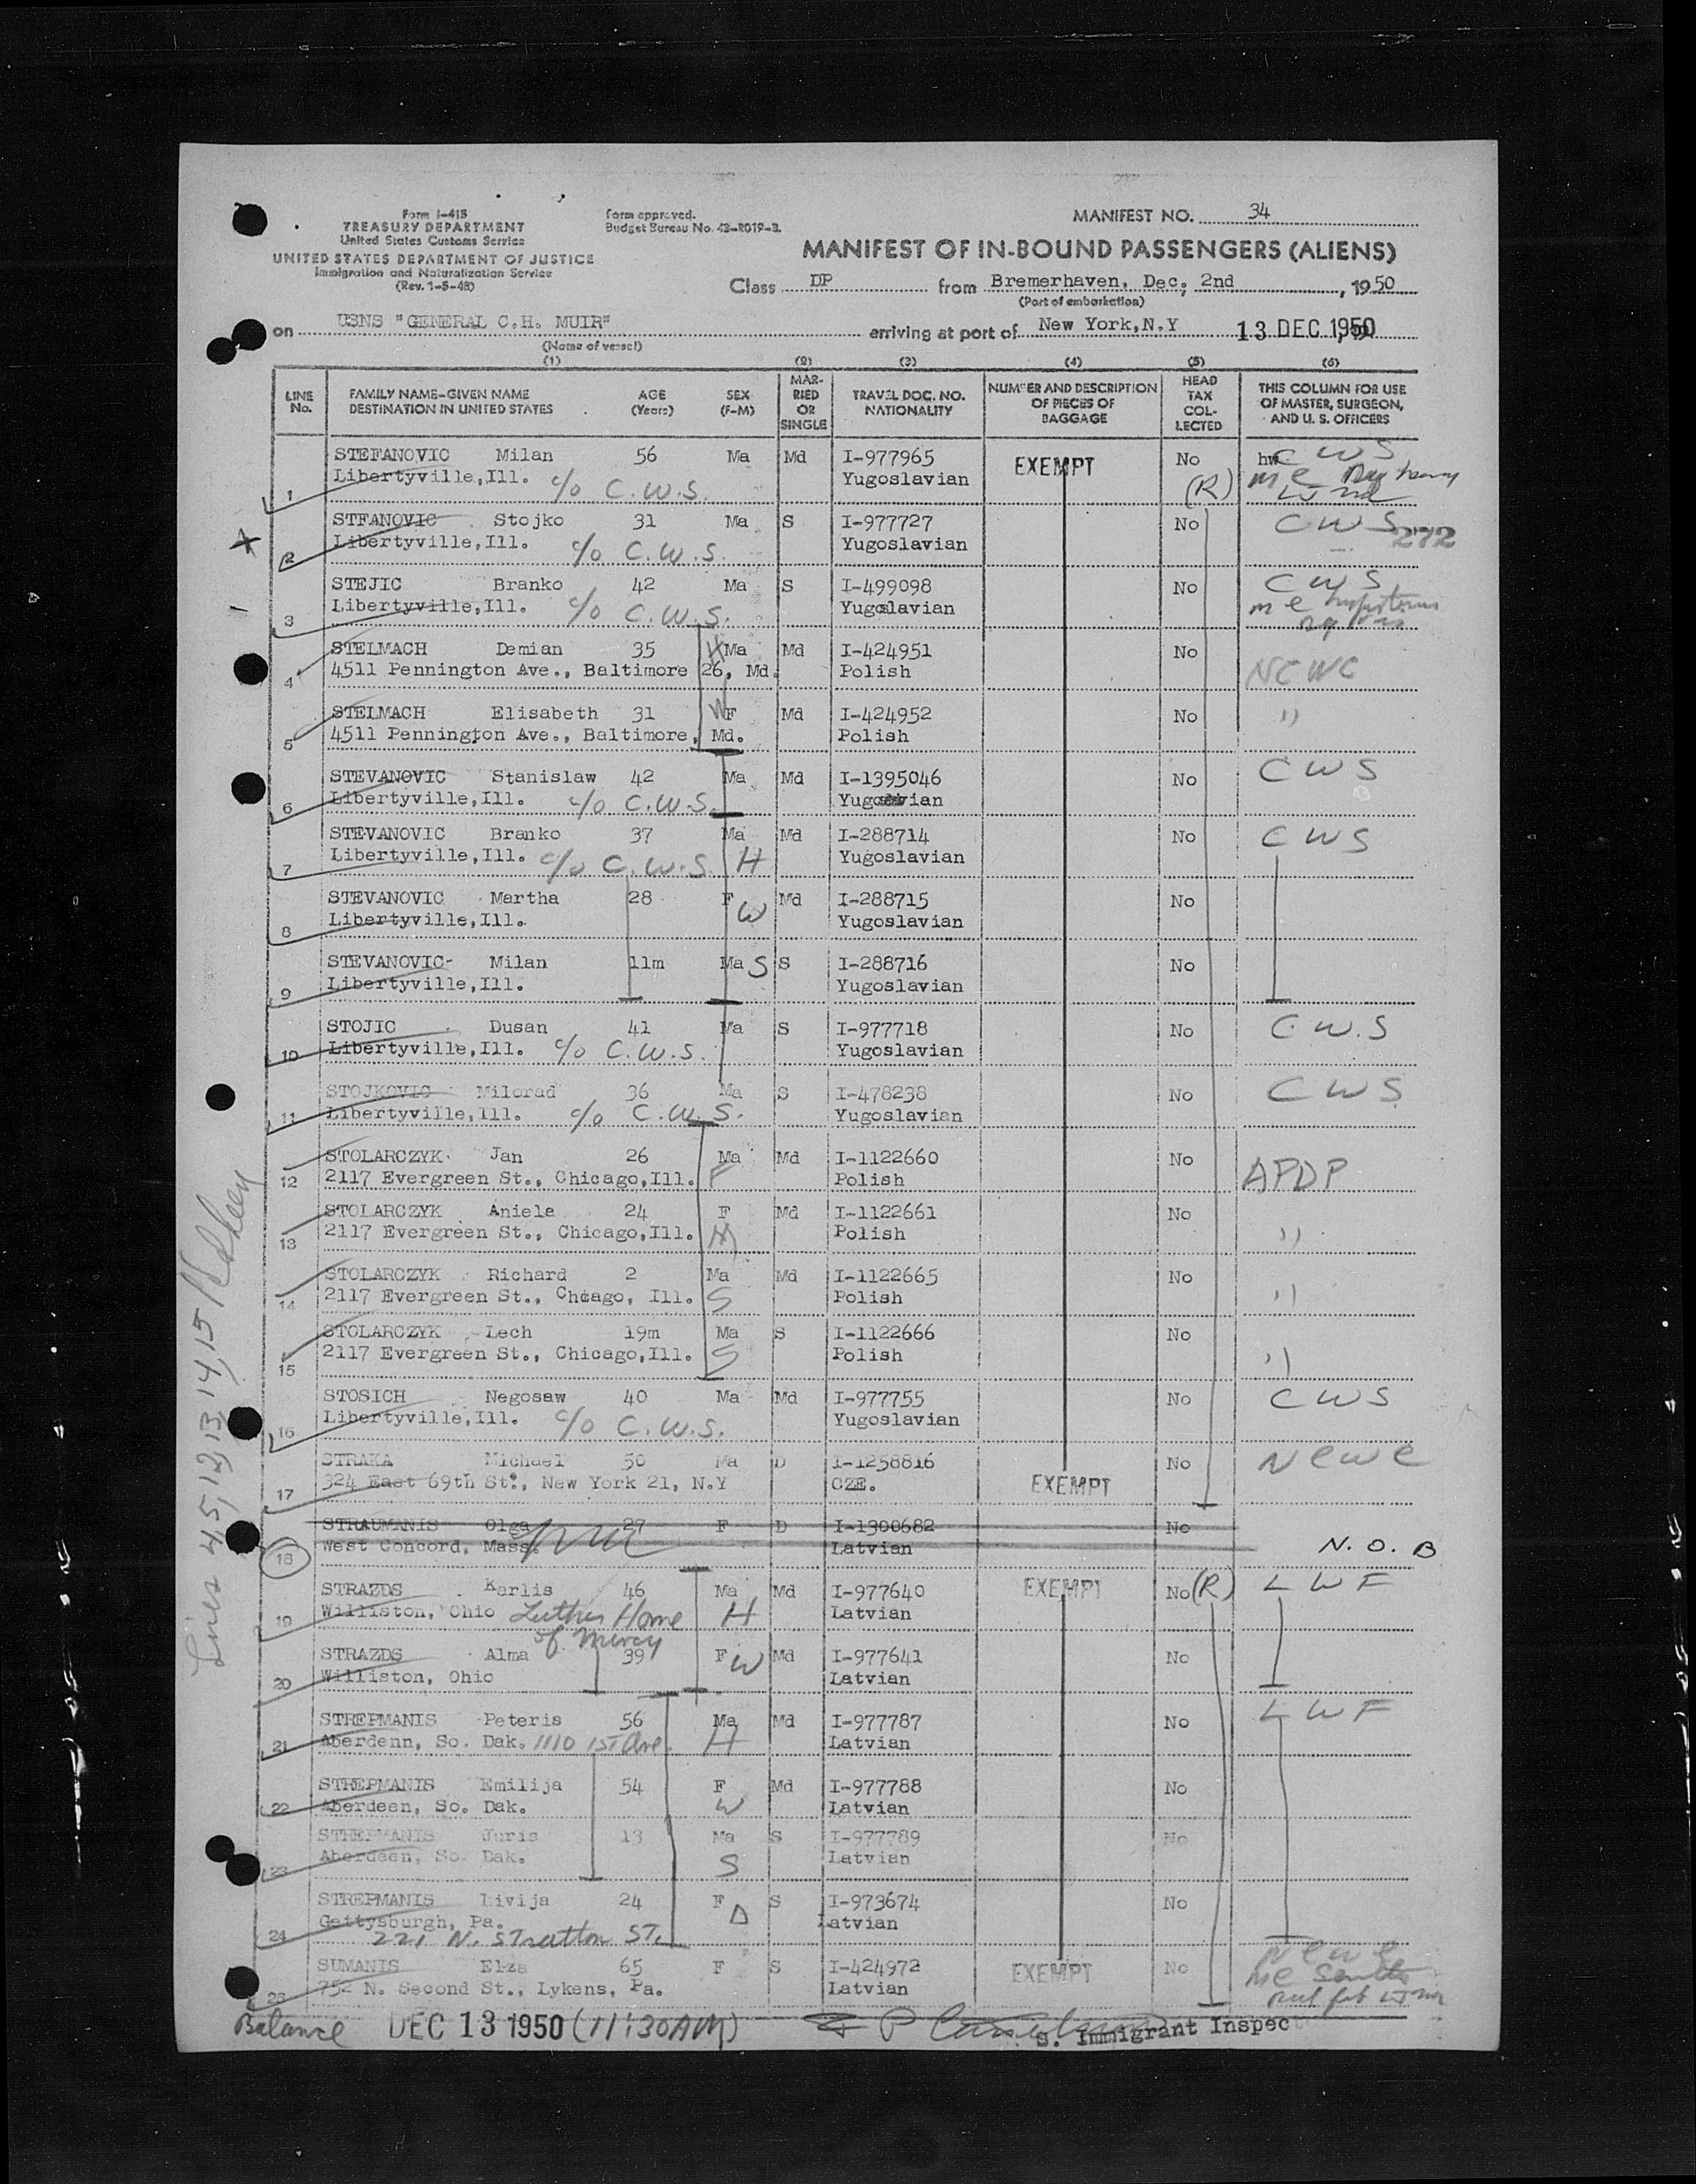 Form I-418
TREASURY DEPARTMENT
United States Customs Service
UNITED STATES DEPARTMENT OF JUSTICE
Immigration and Naturalization Service
(Rev. 1-5-48)
Form approved.
Budget Bureau No. 43-R019-3.
MANIFEST NO. 34
MANIFEST OF IN-BOUND PASSENGERS (ALIENS)
Class DP from Bremerhaven, Dec, 2nd, 1950
(Port of embarkation)
on USNS "GENERAL C.H. MUIR" arriving at port of New York,N.Y 13 DEC 1950
(Name of vessel)
(1) (2) (3) (4) (5) (6)
LINE No. FAMILY NAME-GIVEN NAME DESTINATION IN UNITED STATES AGE (Years) SEX (F-M) MARRIED OR SINGLE TRAVEL DOC. NO. NATIONALITY NUMBER AND DESCRIPTION OF PIECES OF BAGGAGE HEAD TAX COLLECTED THIS COLUMN FOR USE OF MASTER, SURGEON, AND U. S. OFFICERS
STEFANOVIC Milan 56 Ma Md I-977965 EXEMPT No hw CWS
1 Libertyville,Ill. c/o C.W.S. Yugoslavian (R) me
STFANOVIC Stojko 31 Ma S I-977727 No CWS 272
2 Libertyville,Ill. c/o C.W.S. Yugoslavian
STEJIC Branko 42 Ma S I-499098 No CWS
3 Libertyville,Ill. c/o C.W.S. Yugoslavian me
STELMACH Demian 35 Ma Md I-424951 No
4 4511 Pennington Ave., Baltimore 26, Md. Polish NCWC
STELMACH Elisabeth 31 W F Md I-424952 No "
5 4511 Pennington Ave., Baltimore, Md. Polish
STEVANOVIC Stanislaw 42 Ma Md I-1395046 No CWS
6 Libertyville,Ill. c/o C.W.S. Yugoslavian
STEVANOVIC Branko 37 Ma Md I-288714 No CWS
7 Libertyville,Ill. c/o C.W.S. H Yugoslavian
STEVANOVIC Martha 28 F W Md I-288715 No
8 Libertyville,Ill. Yugoslavian
STEVANOVIC- Milan 11m Ma S S I-288716 No
9 Libertyville,Ill. Yugoslavian
STOJIC Dusan 41 Ma S I-977718 No C.W.S
10 Libertyville,Ill. c/o C.W.S. Yugoslavian
STOJKOVIC Milorad 36 Ma S I-478238 No CWS
11 Libertyville,Ill. c/o C.W.S. Yugoslavian
STOLARCZYK Jan 26 Ma Md I-1122660 No APDP
12 2117 Evergreen St., Chicago,Ill. F Polish
STOLARCZYK Aniela 24 F Md I-1122661 No
13 2117 Evergreen St., Chicago,Ill. M Polish "
STOLARCZYK Richard 2 Ma Md I-1122665 No
14 2117 Evergreen St., Chcago, Ill. S Polish "
STOLARCZYK Lech 19m Ma S I-1122666 No
15 2117 Evergreen St., Chicago,Ill. S Polish "
STOSICH Negosaw 40 Ma Md I-977755 No CWS
16 Libertyville,Ill. c/o C.W.S. Yugoslavian
STRAKA Michael 50 Ma D I-1258816 No NCWC
17 324 East 69th St., New York 21, N.Y CZE. EXEMPT
STRAUMANIS Olga 27 F D I-1300682 No
18 West Concord, Mass. Latvian N.O.B
STRAZDS Karlis 46 Ma Md I-977640 EXEMPT No (R) LWF
19 Williston, Ohio Luther Home of Mercy H Latvian
STRAZDS Alma 39 F W Md I-977641 No
20 Williston, Ohio Latvian
STREPMANIS Peteris 56 Ma Md I-977787 No LWF
21 Aberdenn, So. Dak. 1110 1st Ave. H Latvian
STREPMANIS Emilija 54 F Md I-977788 No
22 Aberdeen, So. Dak. W Latvian
STREPMANIS Juris 13 Ma S I-977789 No
23 Aberdeen, So. Dak. S Latvian
STREPMANIS Livija 24 F D S I-973674 No
Gettysburgh, Pa. Latvian
24 221 N. Stratton ST.
SUMANIS Elza 65 F S I-424972 EXEMPT No NCWC
25 752 N. Second St., Lykens, Pa. Latvian me
Balance DEC 13 1950 (11:30AM) S. Immigrant Inspec
Lines 4,5,12,13,14,15